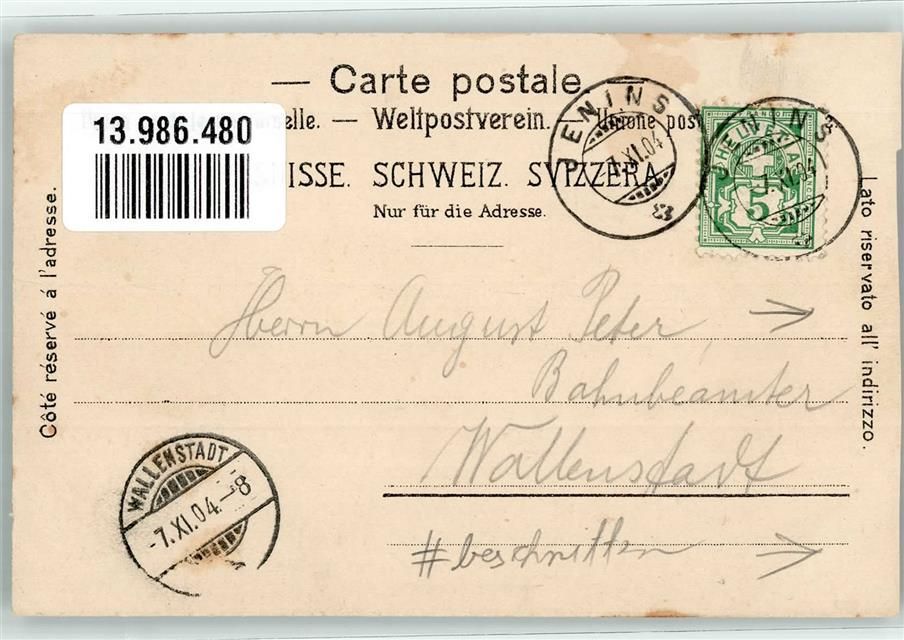 — Carte postale —
13.986.480
elle. — Weltpostverein. — Unione post
ISSE. SCHWEIZ. SVIZZERA.
Nur für die Adresse.
JENINS
7.XI.04
HELVETIA
5
JENINS
7.XI.04
Côté réservé á l'adresse.
Lato riservato all' indirizzo.
Herrn August Peter,
Bahnbeamter
Wallenstadt
WALLENSTADT
-7.XI.04.-8
#beschnitten